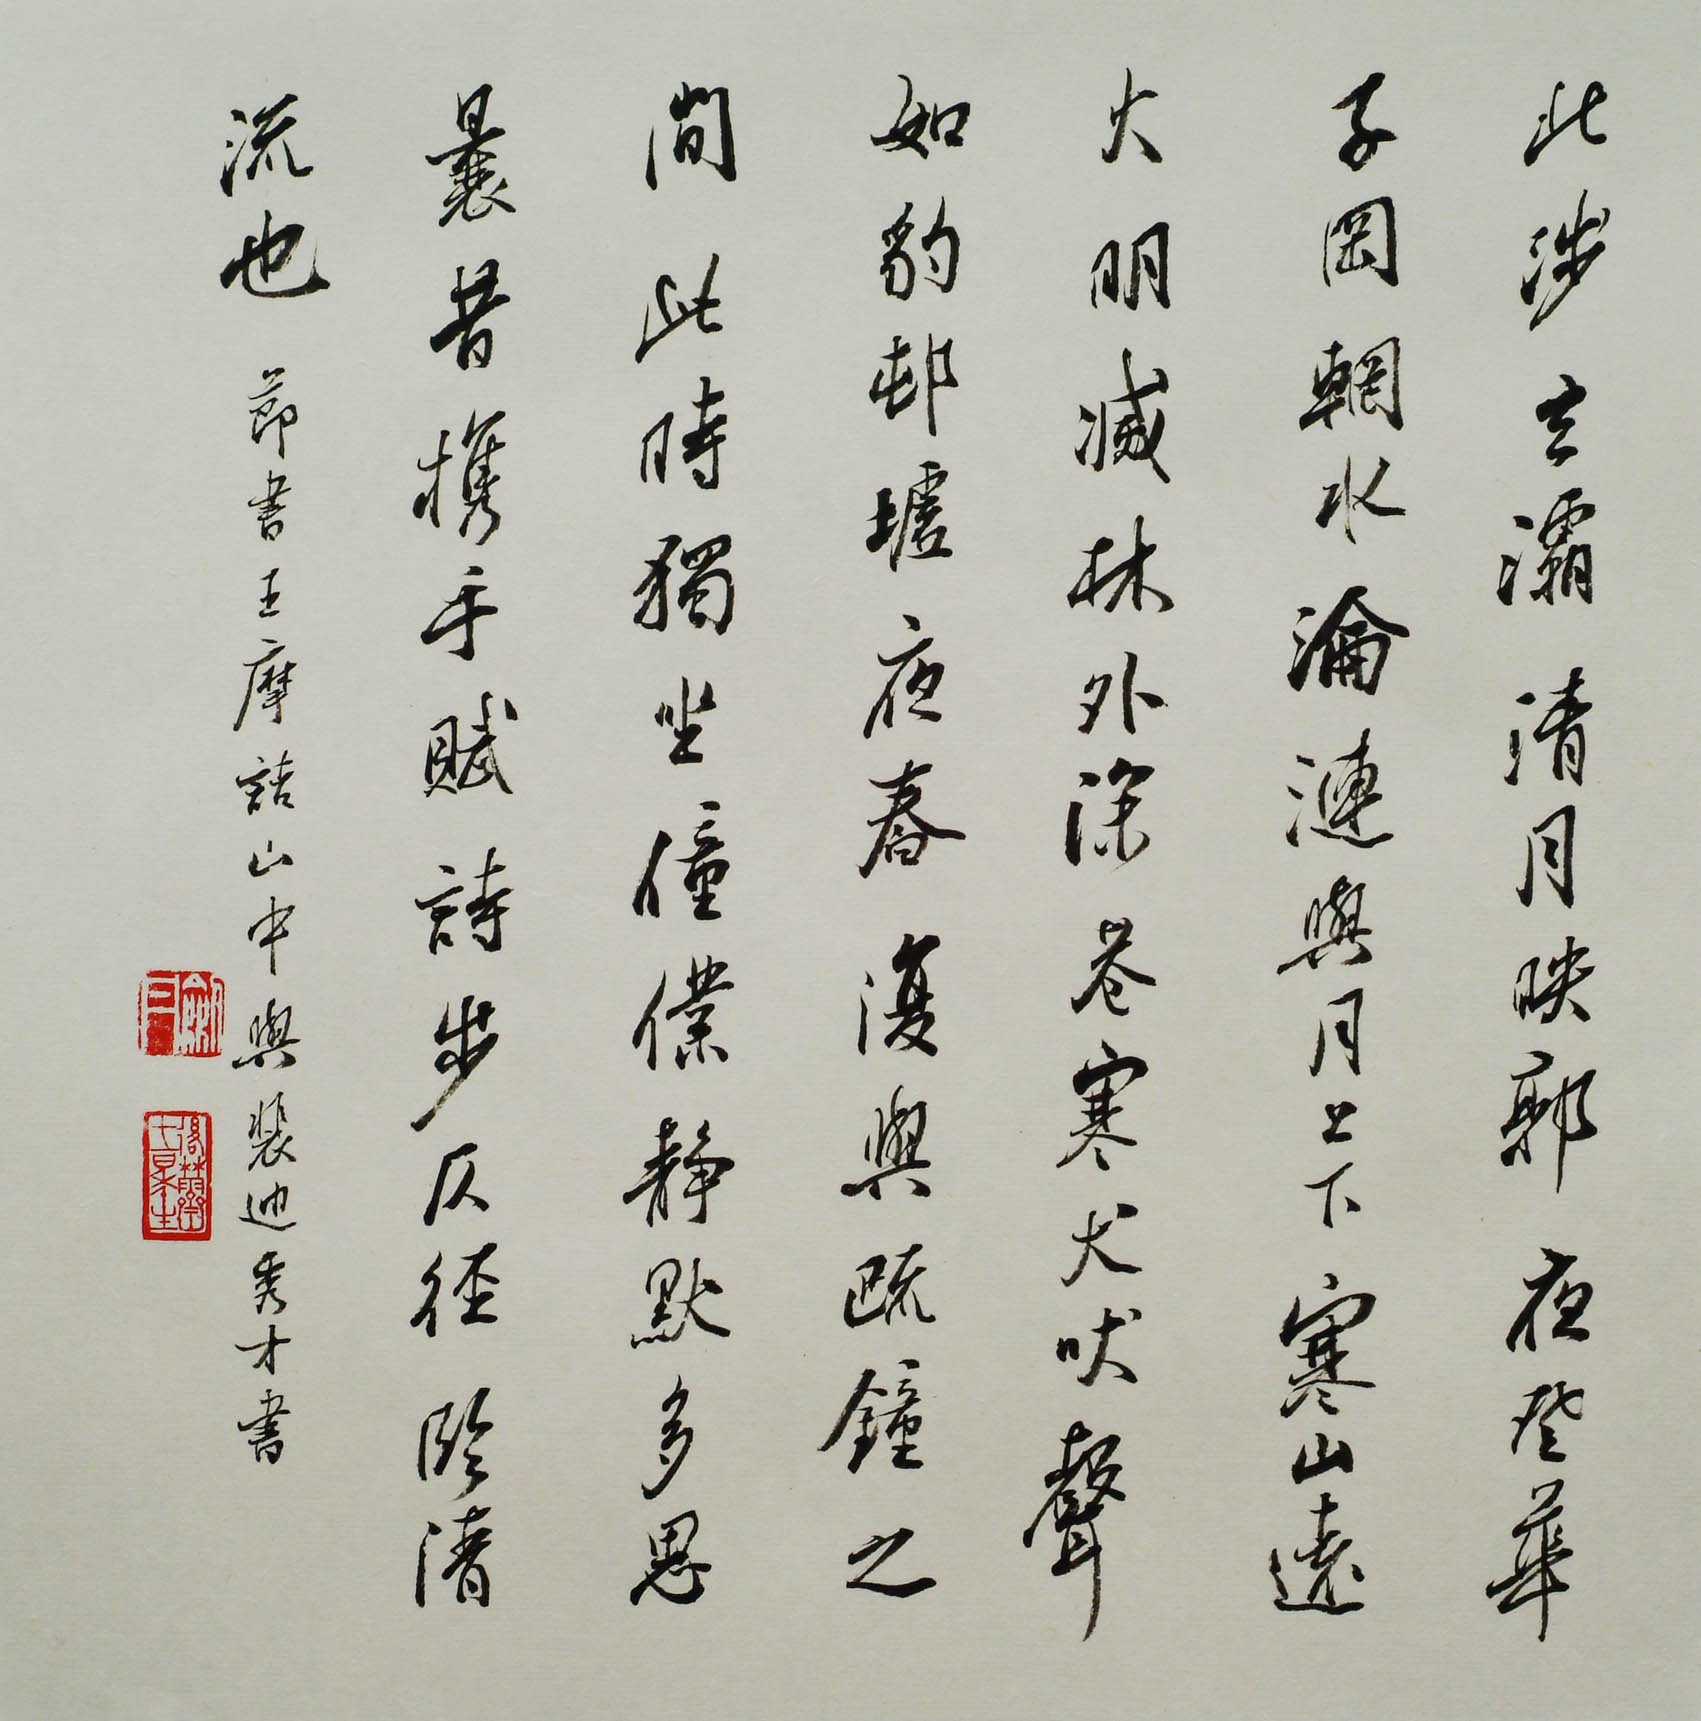 北涉玄灞清月映郭夜登華
子岡輞水淪漣與月上下寒山遠
火明滅林外深巷寒犬吠聲
如豹邨墟夜舂復與疏鐘之
間此時獨坐僮僕靜默多思
曩昔携手賦詩步仄徑臨清
流也 節書王摩詰山中與裴迪秀才書